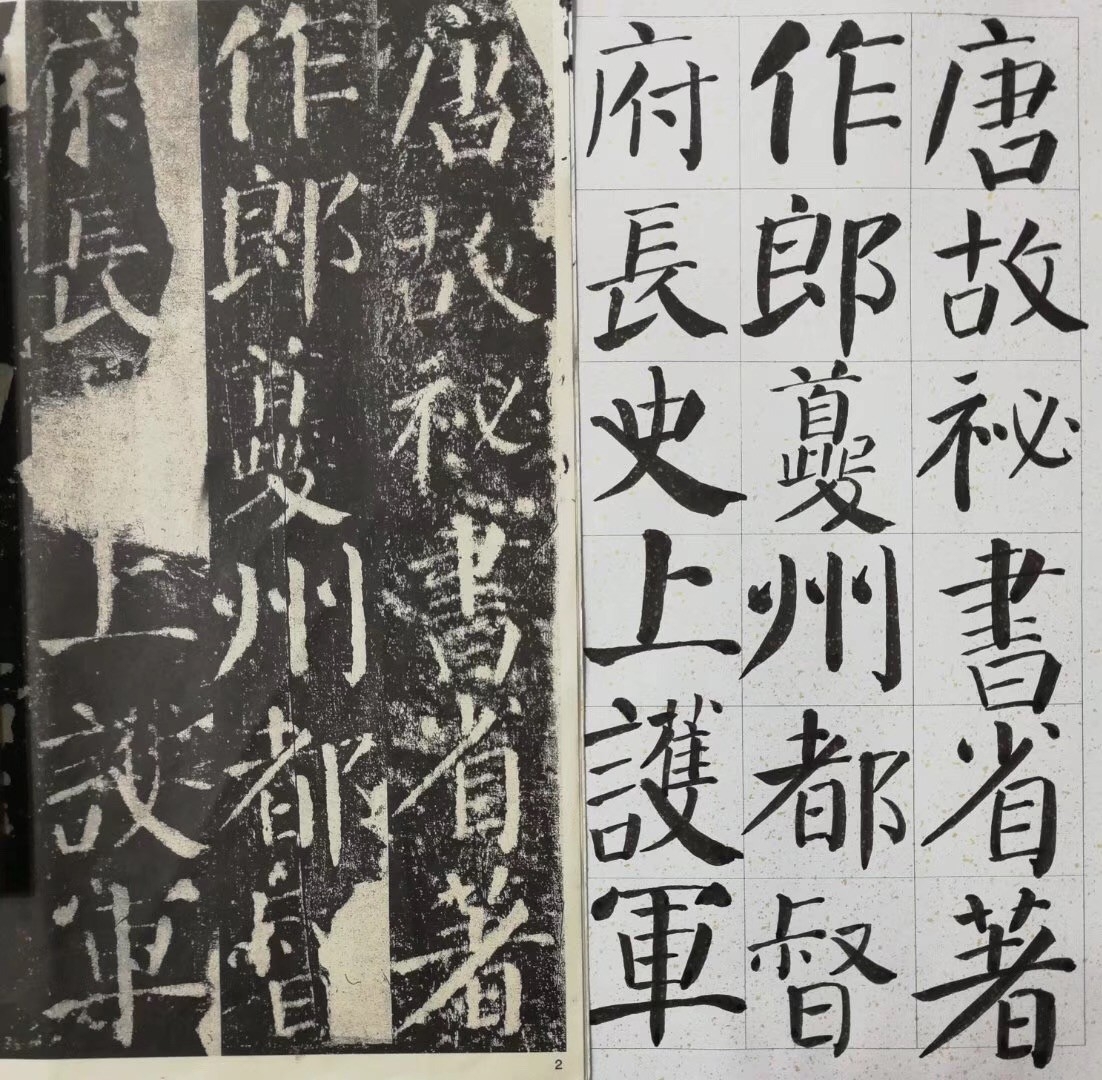 唐故祕書省著
作郎夔州都督
府長上護軍
2
唐故祕書省著
作郎夔州都督
府長史上護軍